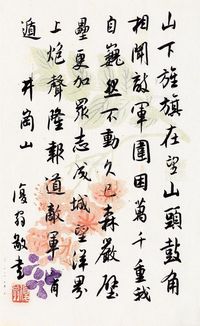 山下旌旗在望山頭鼓角
相聞敵軍圍困萬千重我
自巍然不動久已森嚴壁
壘更加眾志成城望洋界
上炮聲隆報道敵軍宵
遁 井崗山
敬書